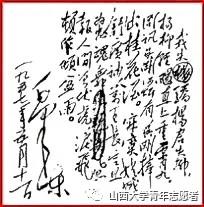 我失骄楊君失柳
楊柳轻飏直上重霄九
问讯吴刚何所有吴刚捧
出桂花酒 寂寞嫦娥
舒广袖万里長空且为
忠魂舞 忽
报人间曾伏虎泪飛
顿作倾盆雨
毛泽东
一九五七年五月十一日
山西大学青年志愿者